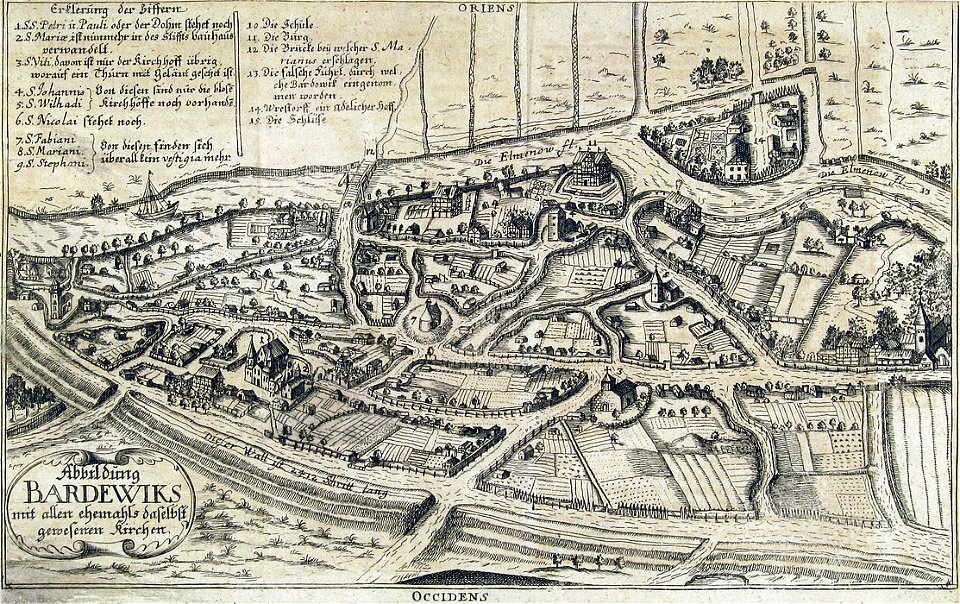 ORIENS
Erklerung der Ziffern
1. SS. Petri ŭ Pauli oder der Dohm stehet noch
2. S. Mariæ ist nunmehr in des Stiffts bauhaus
verwandelt.
3. S. Viti. davon ist nur der Kirchhoff übrig,
worauf ein Thurn mit Geläut gesetzet ist
4. S. Johannis
5. S. Wilhadi
Von diesen sind nur die blose
Kirchhoffe noch vorhand:
6. S. Nicolai stehet noch.
7. S. Fabiani
8. S. Mariani.
9. S. Stephani.
Von diesen finden sich
überall kein vestigia mehr.
10. Die Schule
11. Die Burg.
12. Die Brücke beÿ welcher S. Ma-
rianus erschlagen.
13. Die falsche Fuhrt, durch wel-
che Bardowik eingenom-
men worden
14. Wrestorff ein Adelicher hoff.
15. Die Schlüse
Die Elmenow fl.
Die Elmenow fl.
13
12
14
7
3
Wall ist 2422 Schritt lang
Abbildung
BARDEWIKS
mit allen ehemahls daselbst
gewesenen Kirchen
OCCIDENS